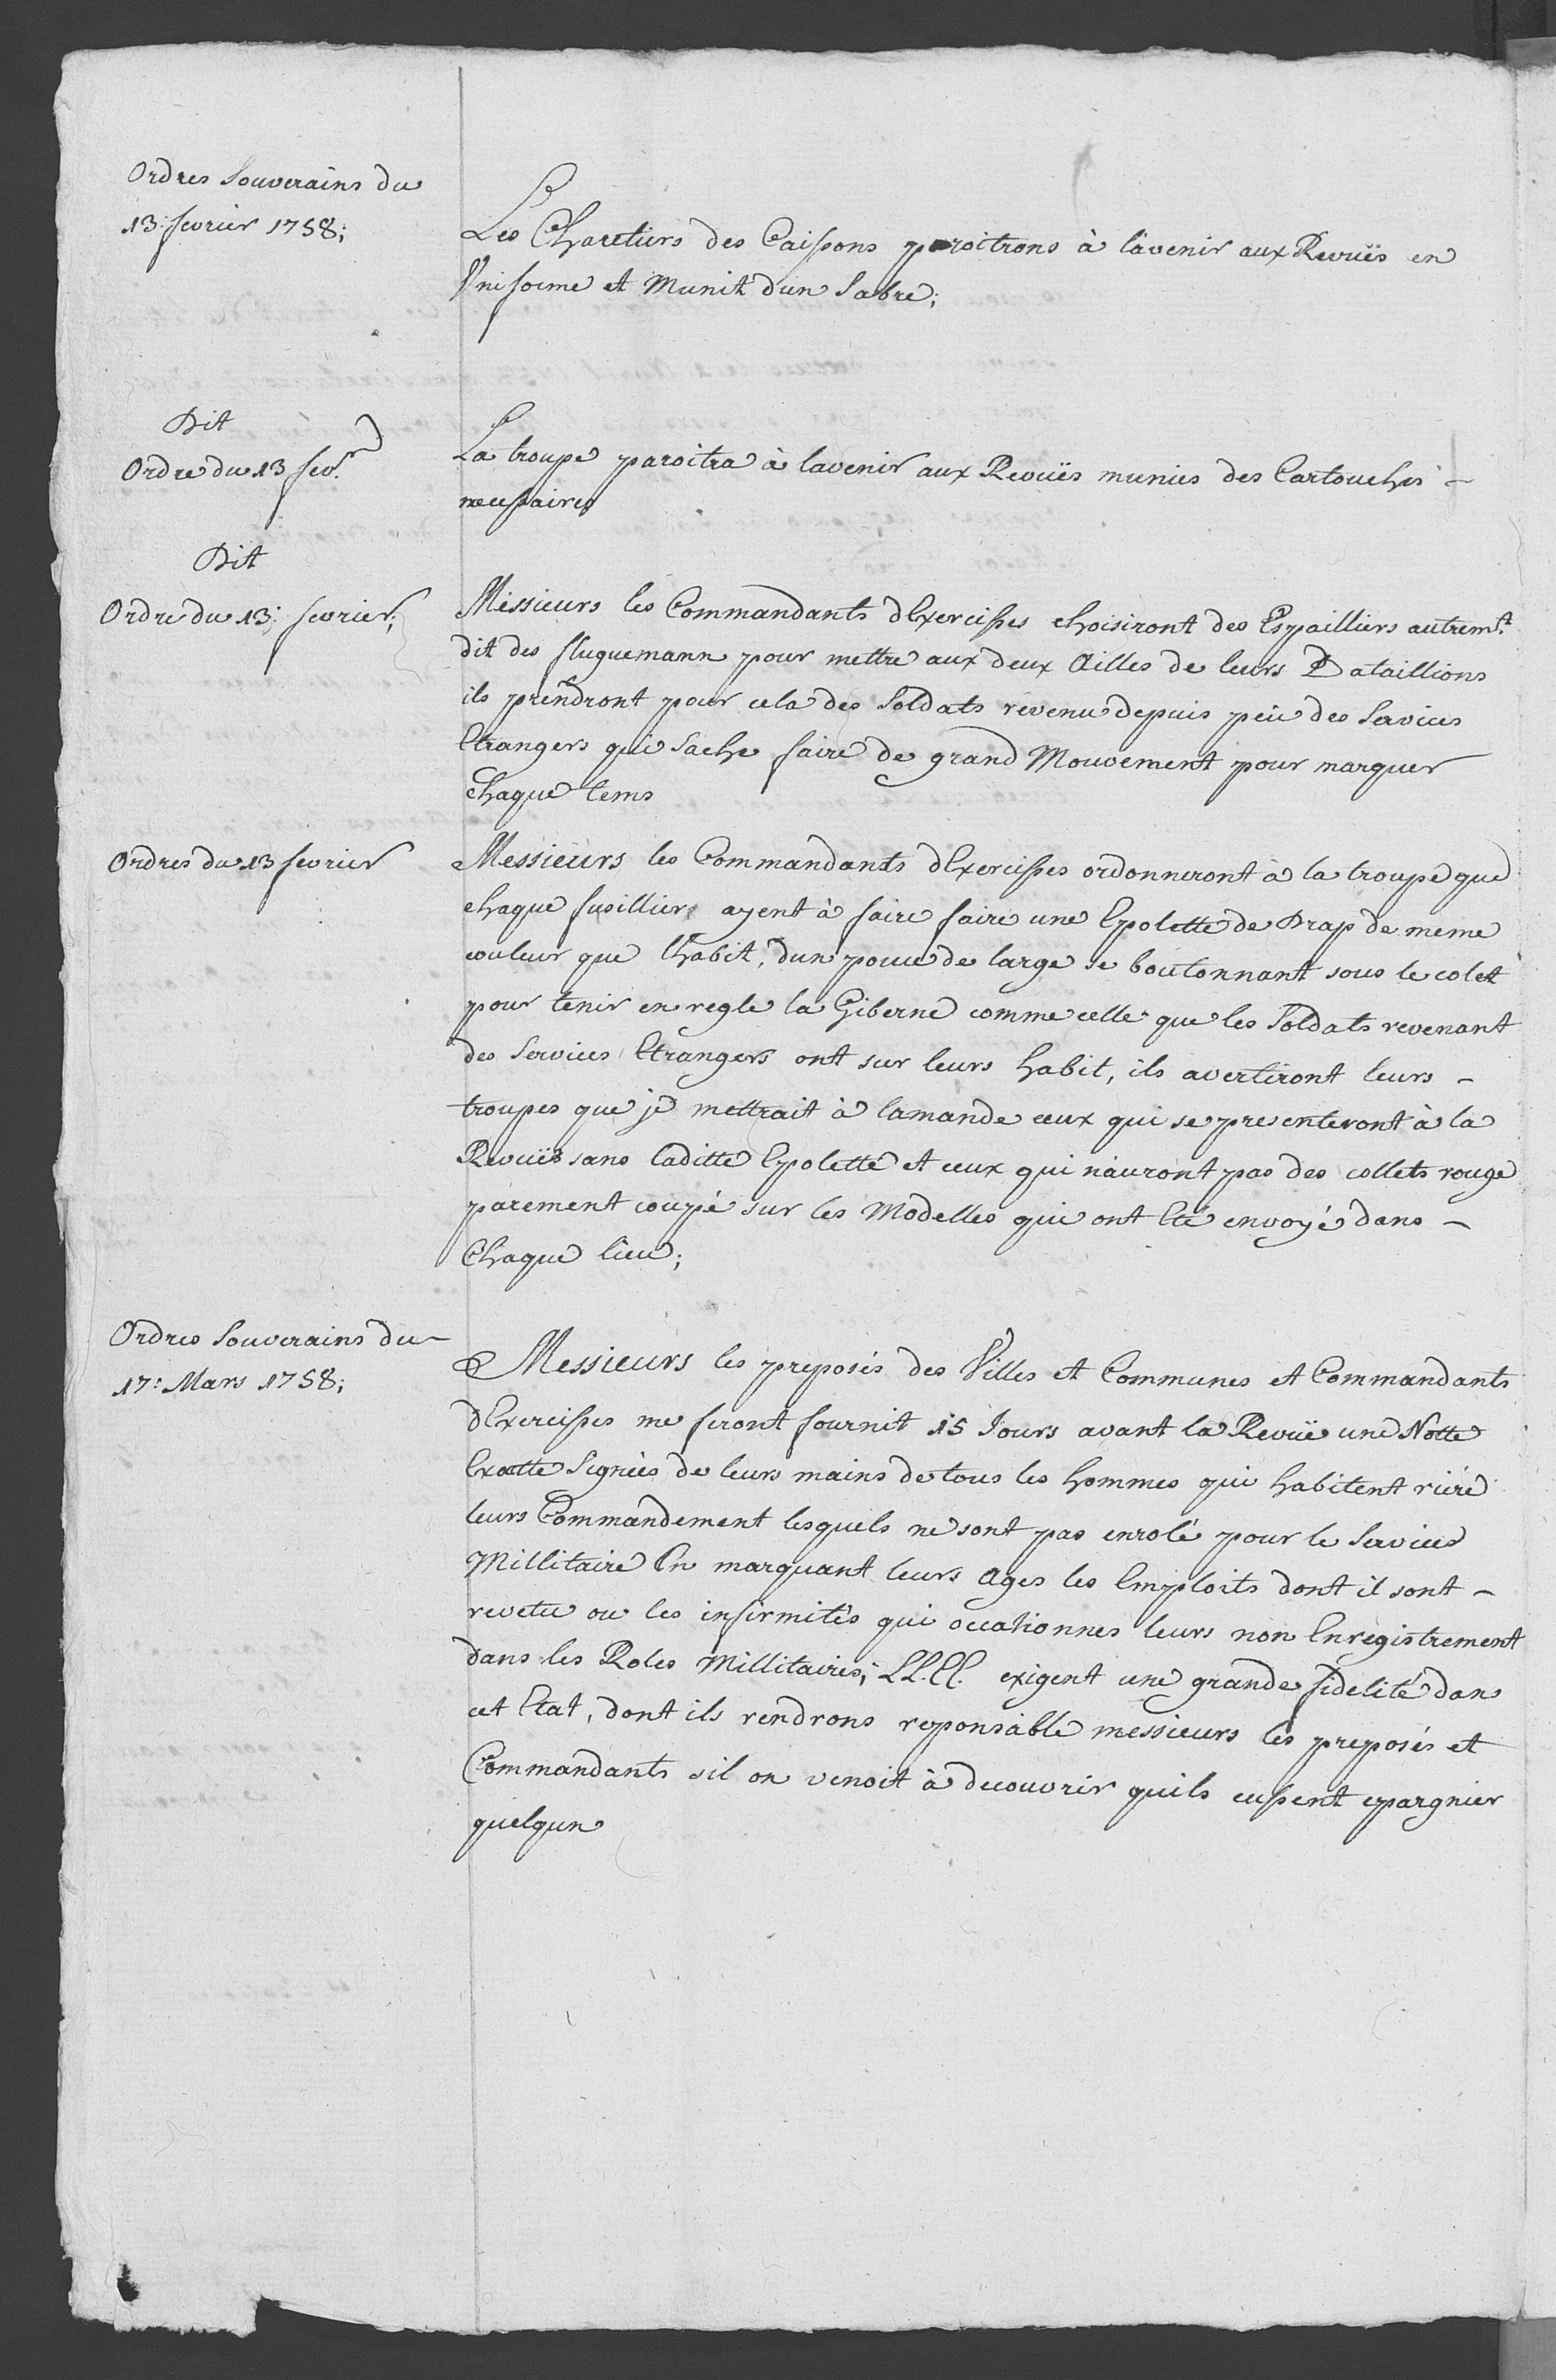 Ordres Souverains du
13: fevrier 1758;
Les Charetiers des Caissons paroitrons à lavenir aux Revuës en
Uniforme et Munit dun Sabre;
Dit
Ordre du 13 fevr.
La troupe paroitra à lavenir aux Revuës munies des Cartouches -
necessaires
Dit
Ordre du 13: fevrier;
Messieurs les Commandants dExercisses choisiront des Espailliers autremt.
dit des fluguemann pour mettre aux deux Ailles de leurs Bataillions
ils prendront pour cela des Soldats revenu depuis peu des Services
Etrangers qui Sache faire de grand Mouvement pour marquer
Chaque tems
Ordres du 13 fevrier
Messieurs les Commandants dExercisses ordonneront à la troupe que
chaque fusillier ayent à faire faire une Epolette de Drap de meme
couleur que lhabit, dun pouce de large se boutonnant sous le colet
pour tenir en regle la Giberne comme celle que les Soldats revenant
des Services Etrangers ont sur leurs habit, ils avertiront leurs -
troupes que je mettrait à lamande ceux qui se presenteront à la
Revuës sans laditte Epolette et ceux qui nauront pas des collets rouge
parement coupé sur les Modelles qui ont Eté envoyé dans -
Chaque lieu;
Ordres Souverains du -
17: Mars 1758;
Messieurs les preposés des Villes et Communes et Commandants
dExercisses me feront fournit 15 Jours avant la Revuë une Notte
Exatte Signées de leurs mains de tous les hommes qui habitent riere
leurs Commandement lesquels ne sont pas enrolé pour le Services
Millitaire En marquant leurs Ages les Emploits dont il sont -
revetu ou les infirmités qui occationnes leurs non Enregistrement
dans les Roles Millitaires; LL.EE. exigent une grande fidelité dans
cet Etat, dont ils rendrons reponsable messieurs les preposés et
Commandants sil on venoit à decouvrir quils eussent epargnier
quelqun